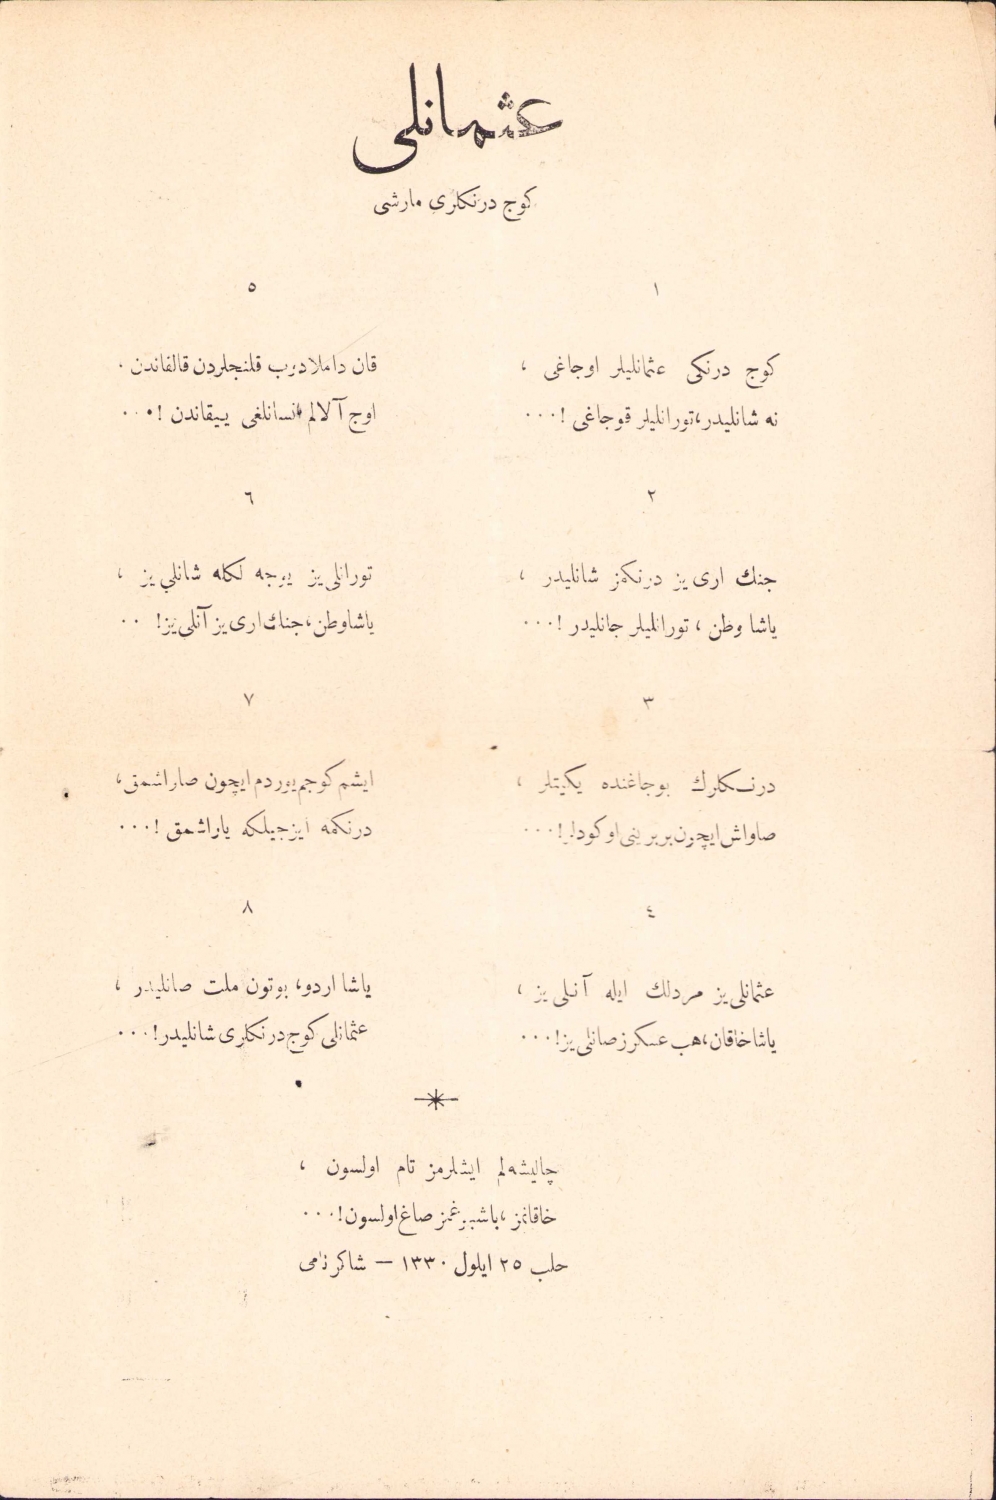 عثمانلی
كوج درنكلری مارشی
١
كوج درنكی عثمانلیلر اوجاغی ،
نه شانلیدر، تورانلیلر قوجاغی !...
٢
جنك اری یز درنكمز شانلیدر ،
یاشا وطن ، تورانلیلر جانلیدر !...
٣
درنكلرك بوجاغنده یكیتلر ،
صاواش ایچون بربرینی اوكودلر!...
٤
عثمانلی یز مردلك ایله آنلی یز ،
یاشا خاقان، هب عسكرز صانلی یز!...
٥
قان داملادوب قلنجلردن قالقاندن .
اوج آلالم انسانلغی ییقاندن !...
٦
تورانلی یز یوجه لكله شانلی یز ،
یاشا وطن، جنك اری یز آنلی یز! ..
٧
ایشم كوجم یوردم ایچون صاراشمق،
درنكمه ایزجیلكه یاراشمق !...
٨
یاشا اردو، بوتون ملت صانلیدر ،
عثمانلی كوج درنكلری شانلیدر!...
چالیشه لم ایشلرمز تام اولسون ،
خاقانمز ، باشبوغمز صاغ اولسون!...
حلب ٢٥ ایلول ١٣٣٠ — شاكر